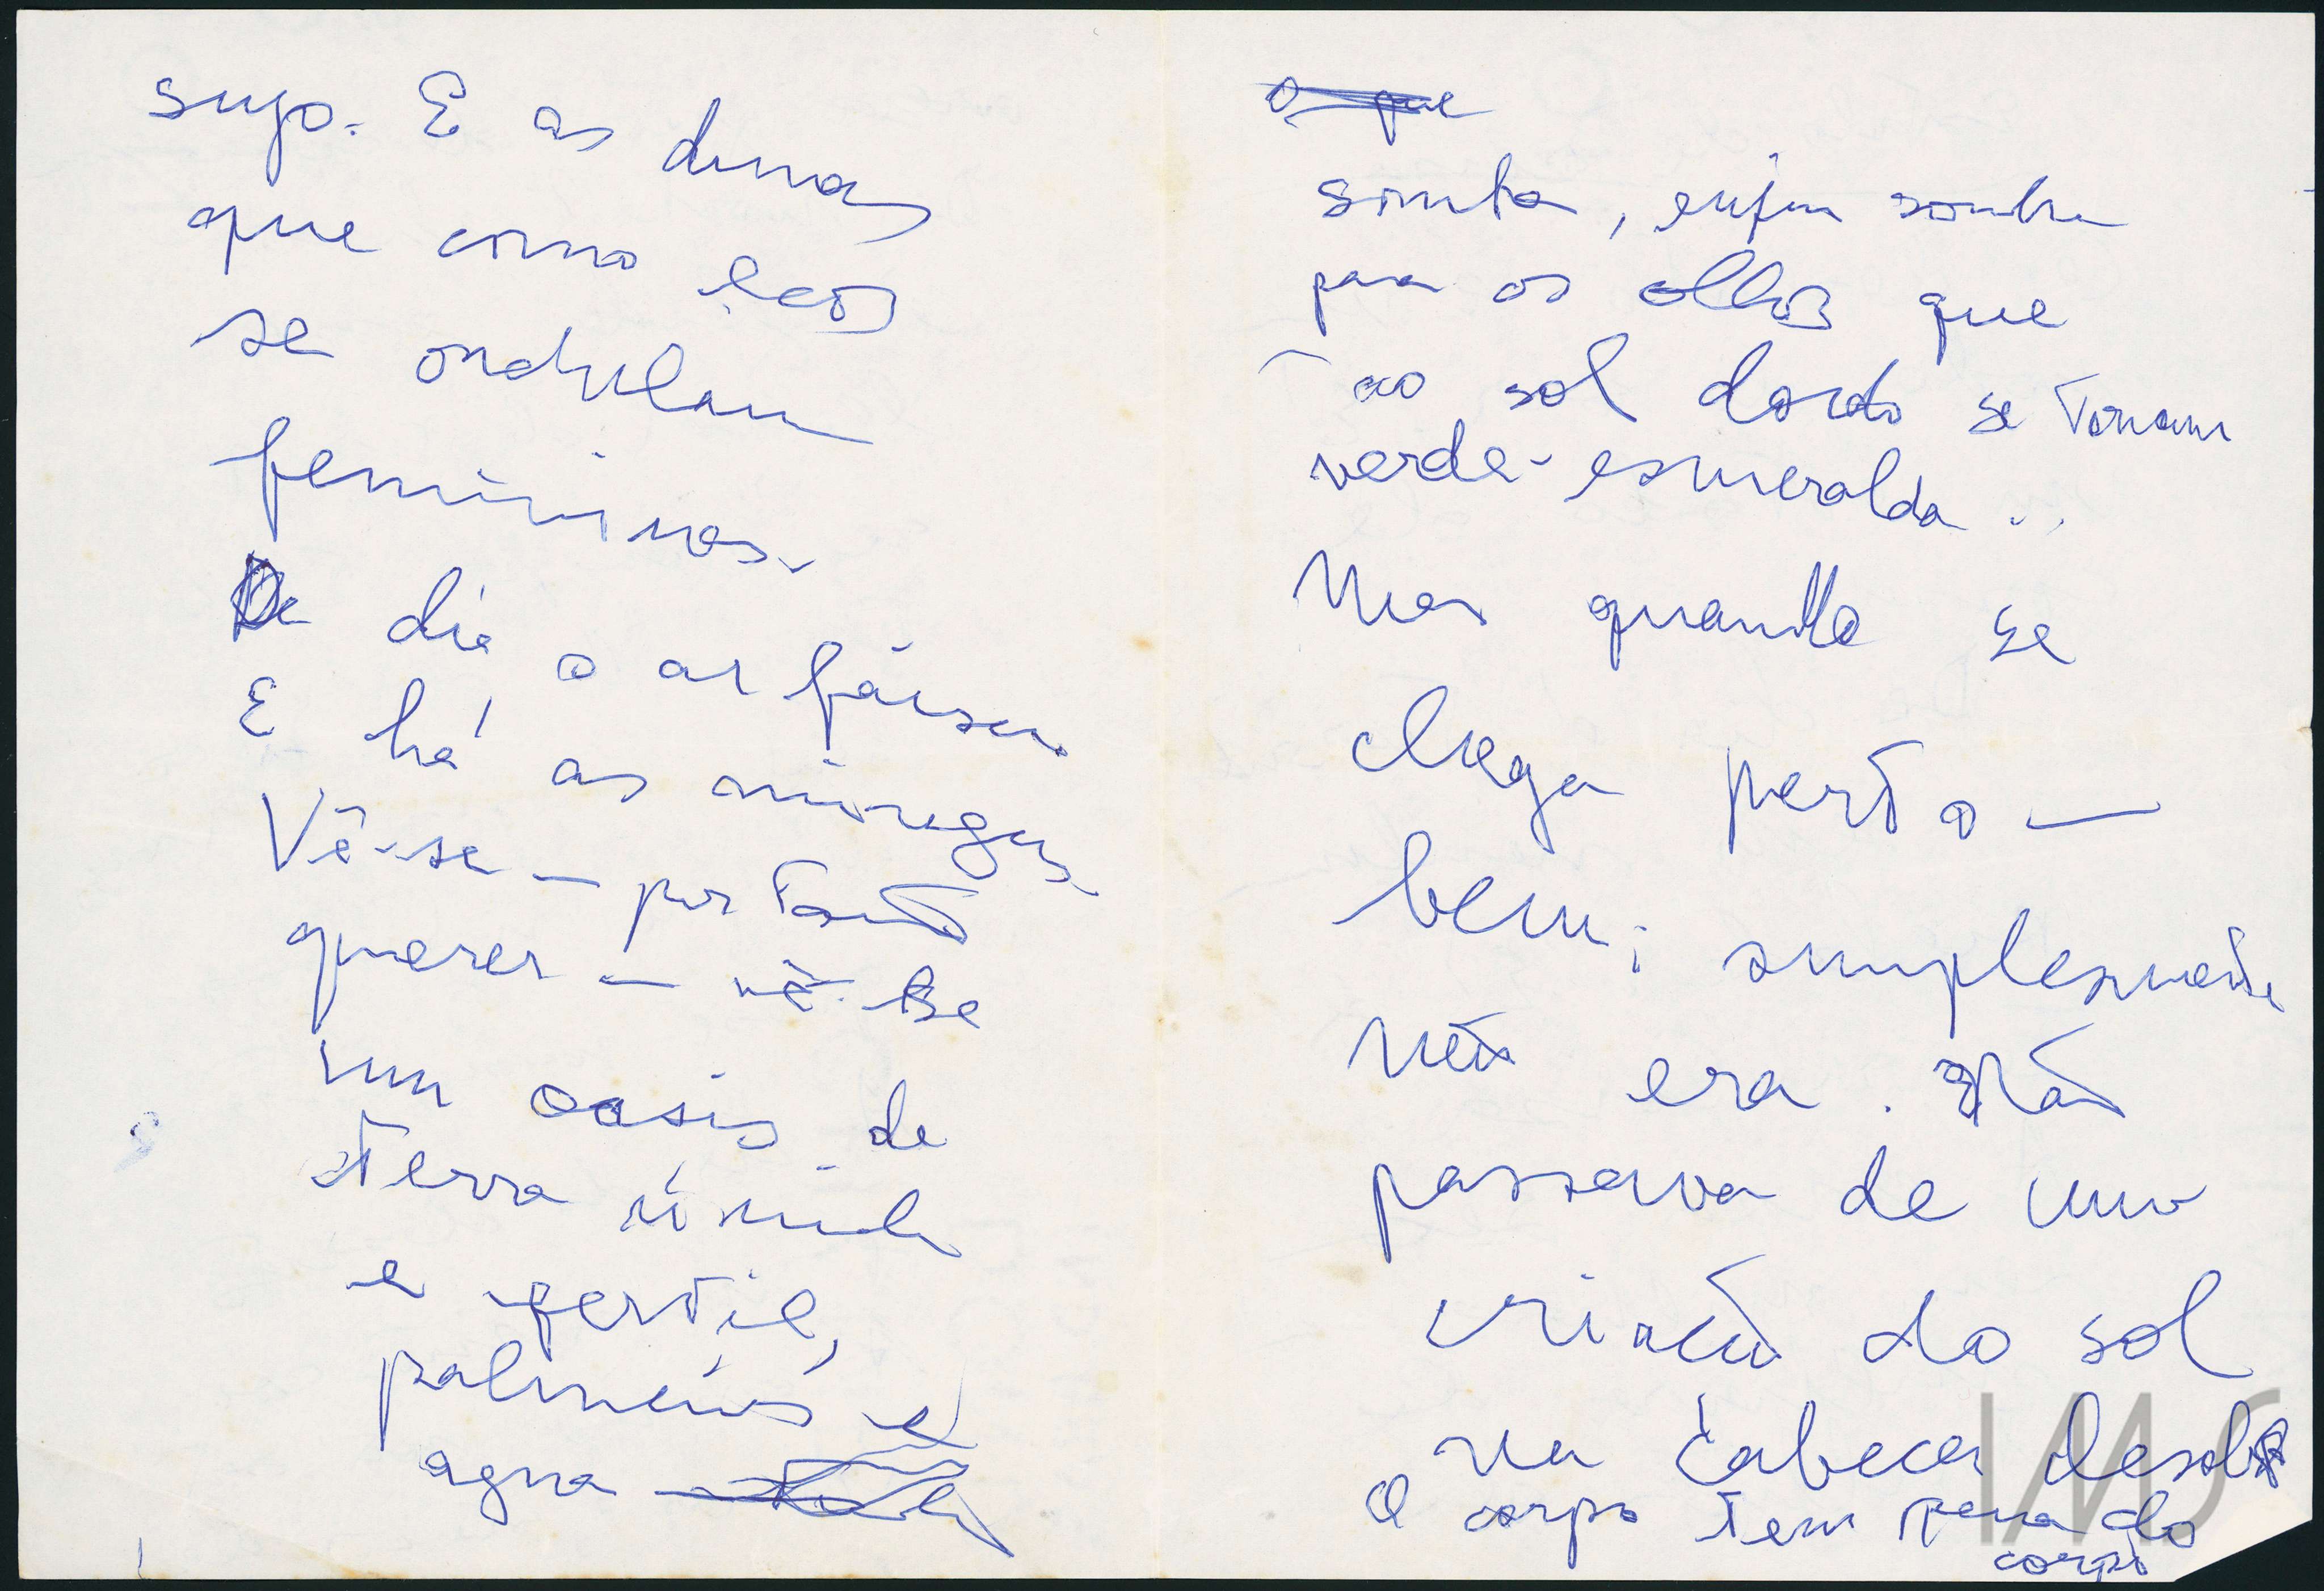 sujo. E as dunas
que como ecos
se ondulam
femininas.
De dia o ar faísca.
E há as miragens.
Vê-se – por tanto
querer – vê-se
um oasis de
terra úmida
e fertil,
palmeiras e
agua
O que
sombra, enfim sombra
para os olhos que
ao sol doido se tornam
verde-esmeralda..
Mas quando se
chega perto –
bem: simplesmente
não era. Não
passava de uma
criação do sol
na cabeça descob
O corpo tem pena do
corpo
IMS